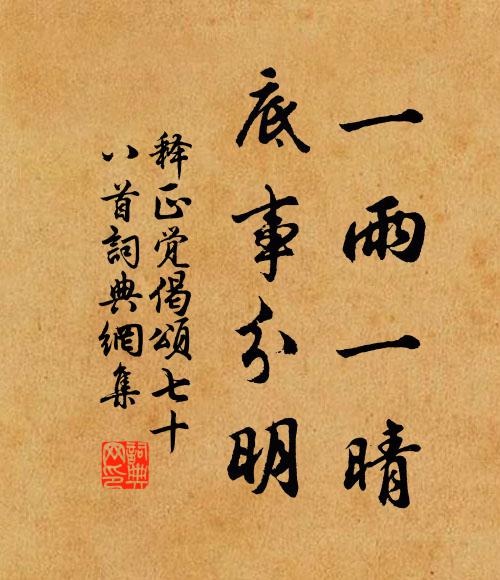 一雨一晴
底事分明
释正觉偈頌七十
八首詞典網集
詞典
网印